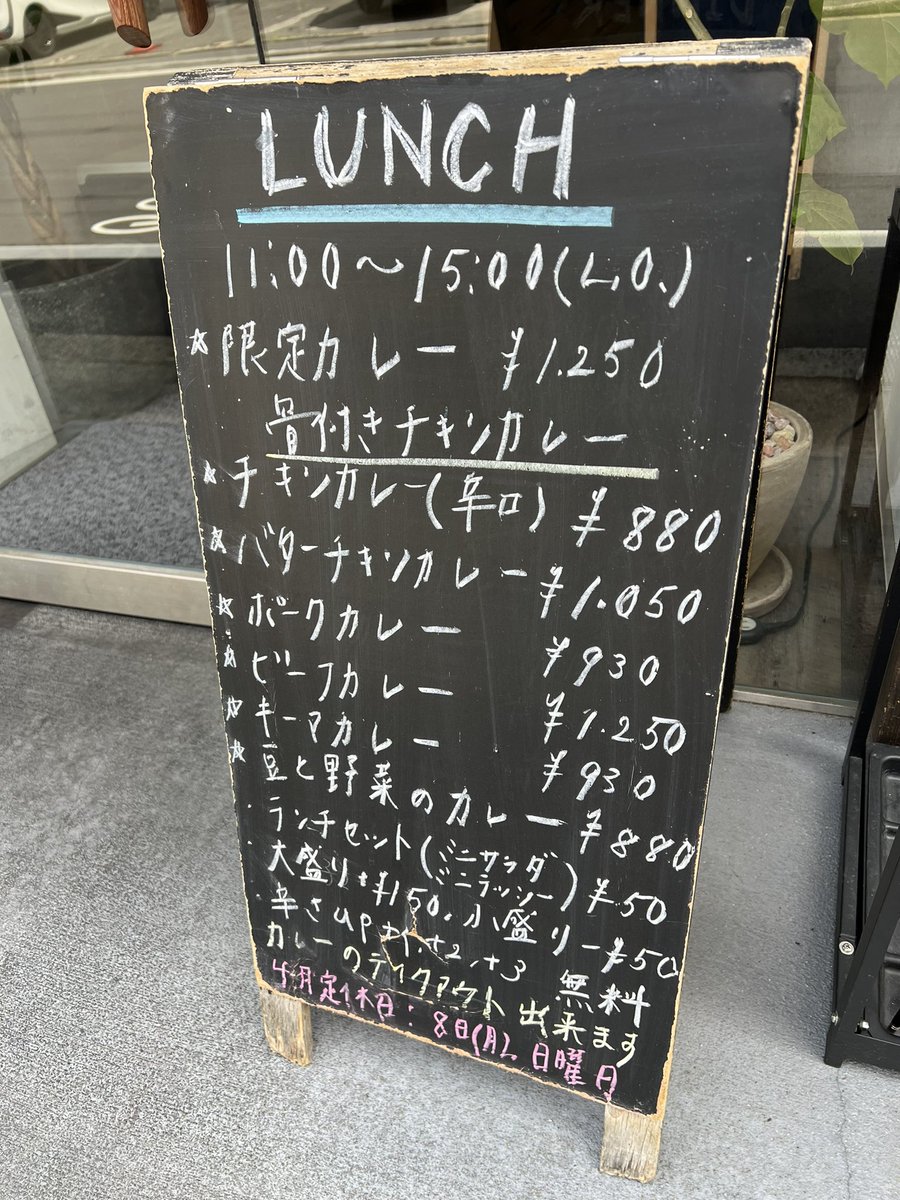 LUNCH
11:00～15:00(L.O.)
☆限定カレー ¥1.250
骨付きチキンカレー
☆チキンカレー(辛口) ¥880
☆バターチキンカレー ¥1.050
☆ポークカレー ¥930
☆ビーフカレー ¥1.250
☆キーマカレー ¥930
☆豆と野菜のカレー ¥880
ランチセット(ミニサラダ ミニラッシー) ¥50
大盛り+¥150.小盛りー¥50
辛さup +1.+2.+3 無料
カレーのテイクアウト出来ます
4月定休日:8日(月)、日曜日